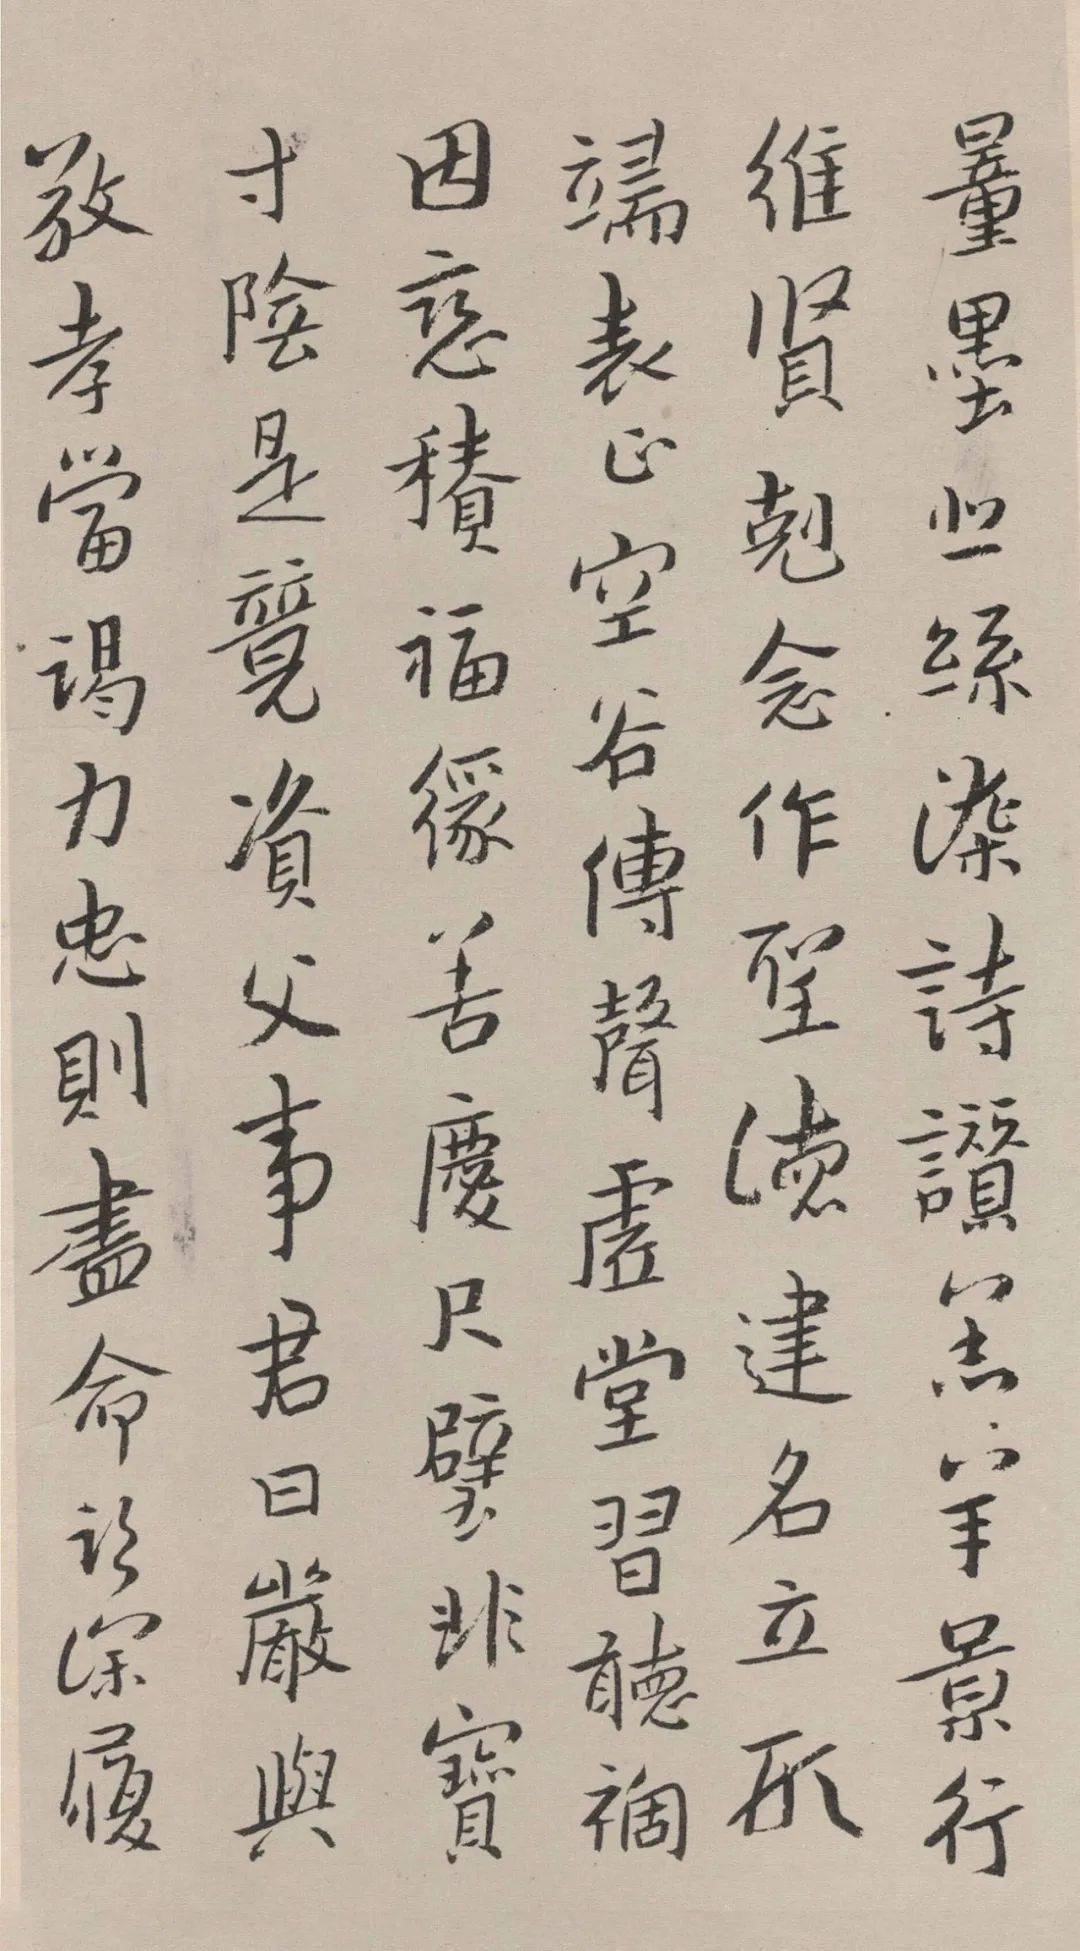 量墨悲絲染詩讚羔羊景行
維賢剋念作聖德建名立形
端表正空谷傳聲虛堂習聽禍
因惡積福緣善慶尺璧非寶
寸陰是競資父事君曰嚴與
敬孝當竭力忠則盡命臨深履